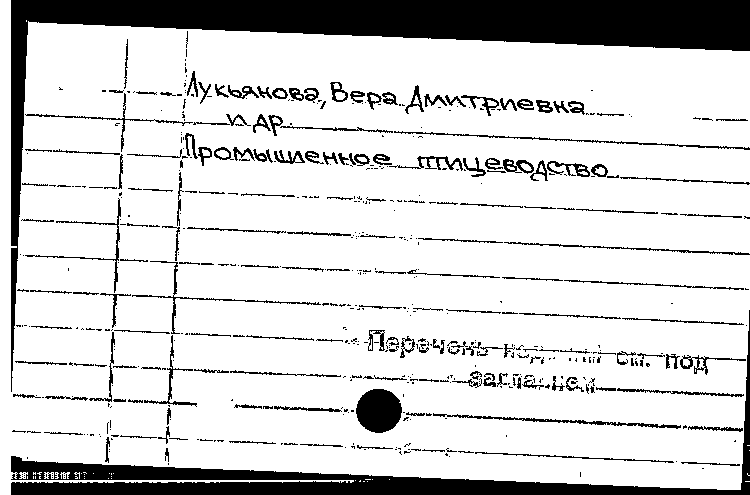 Лукьянова, Вера Дмитриевна
и др.
Промышленное птицеводство.
Перечень см. под
заглавием